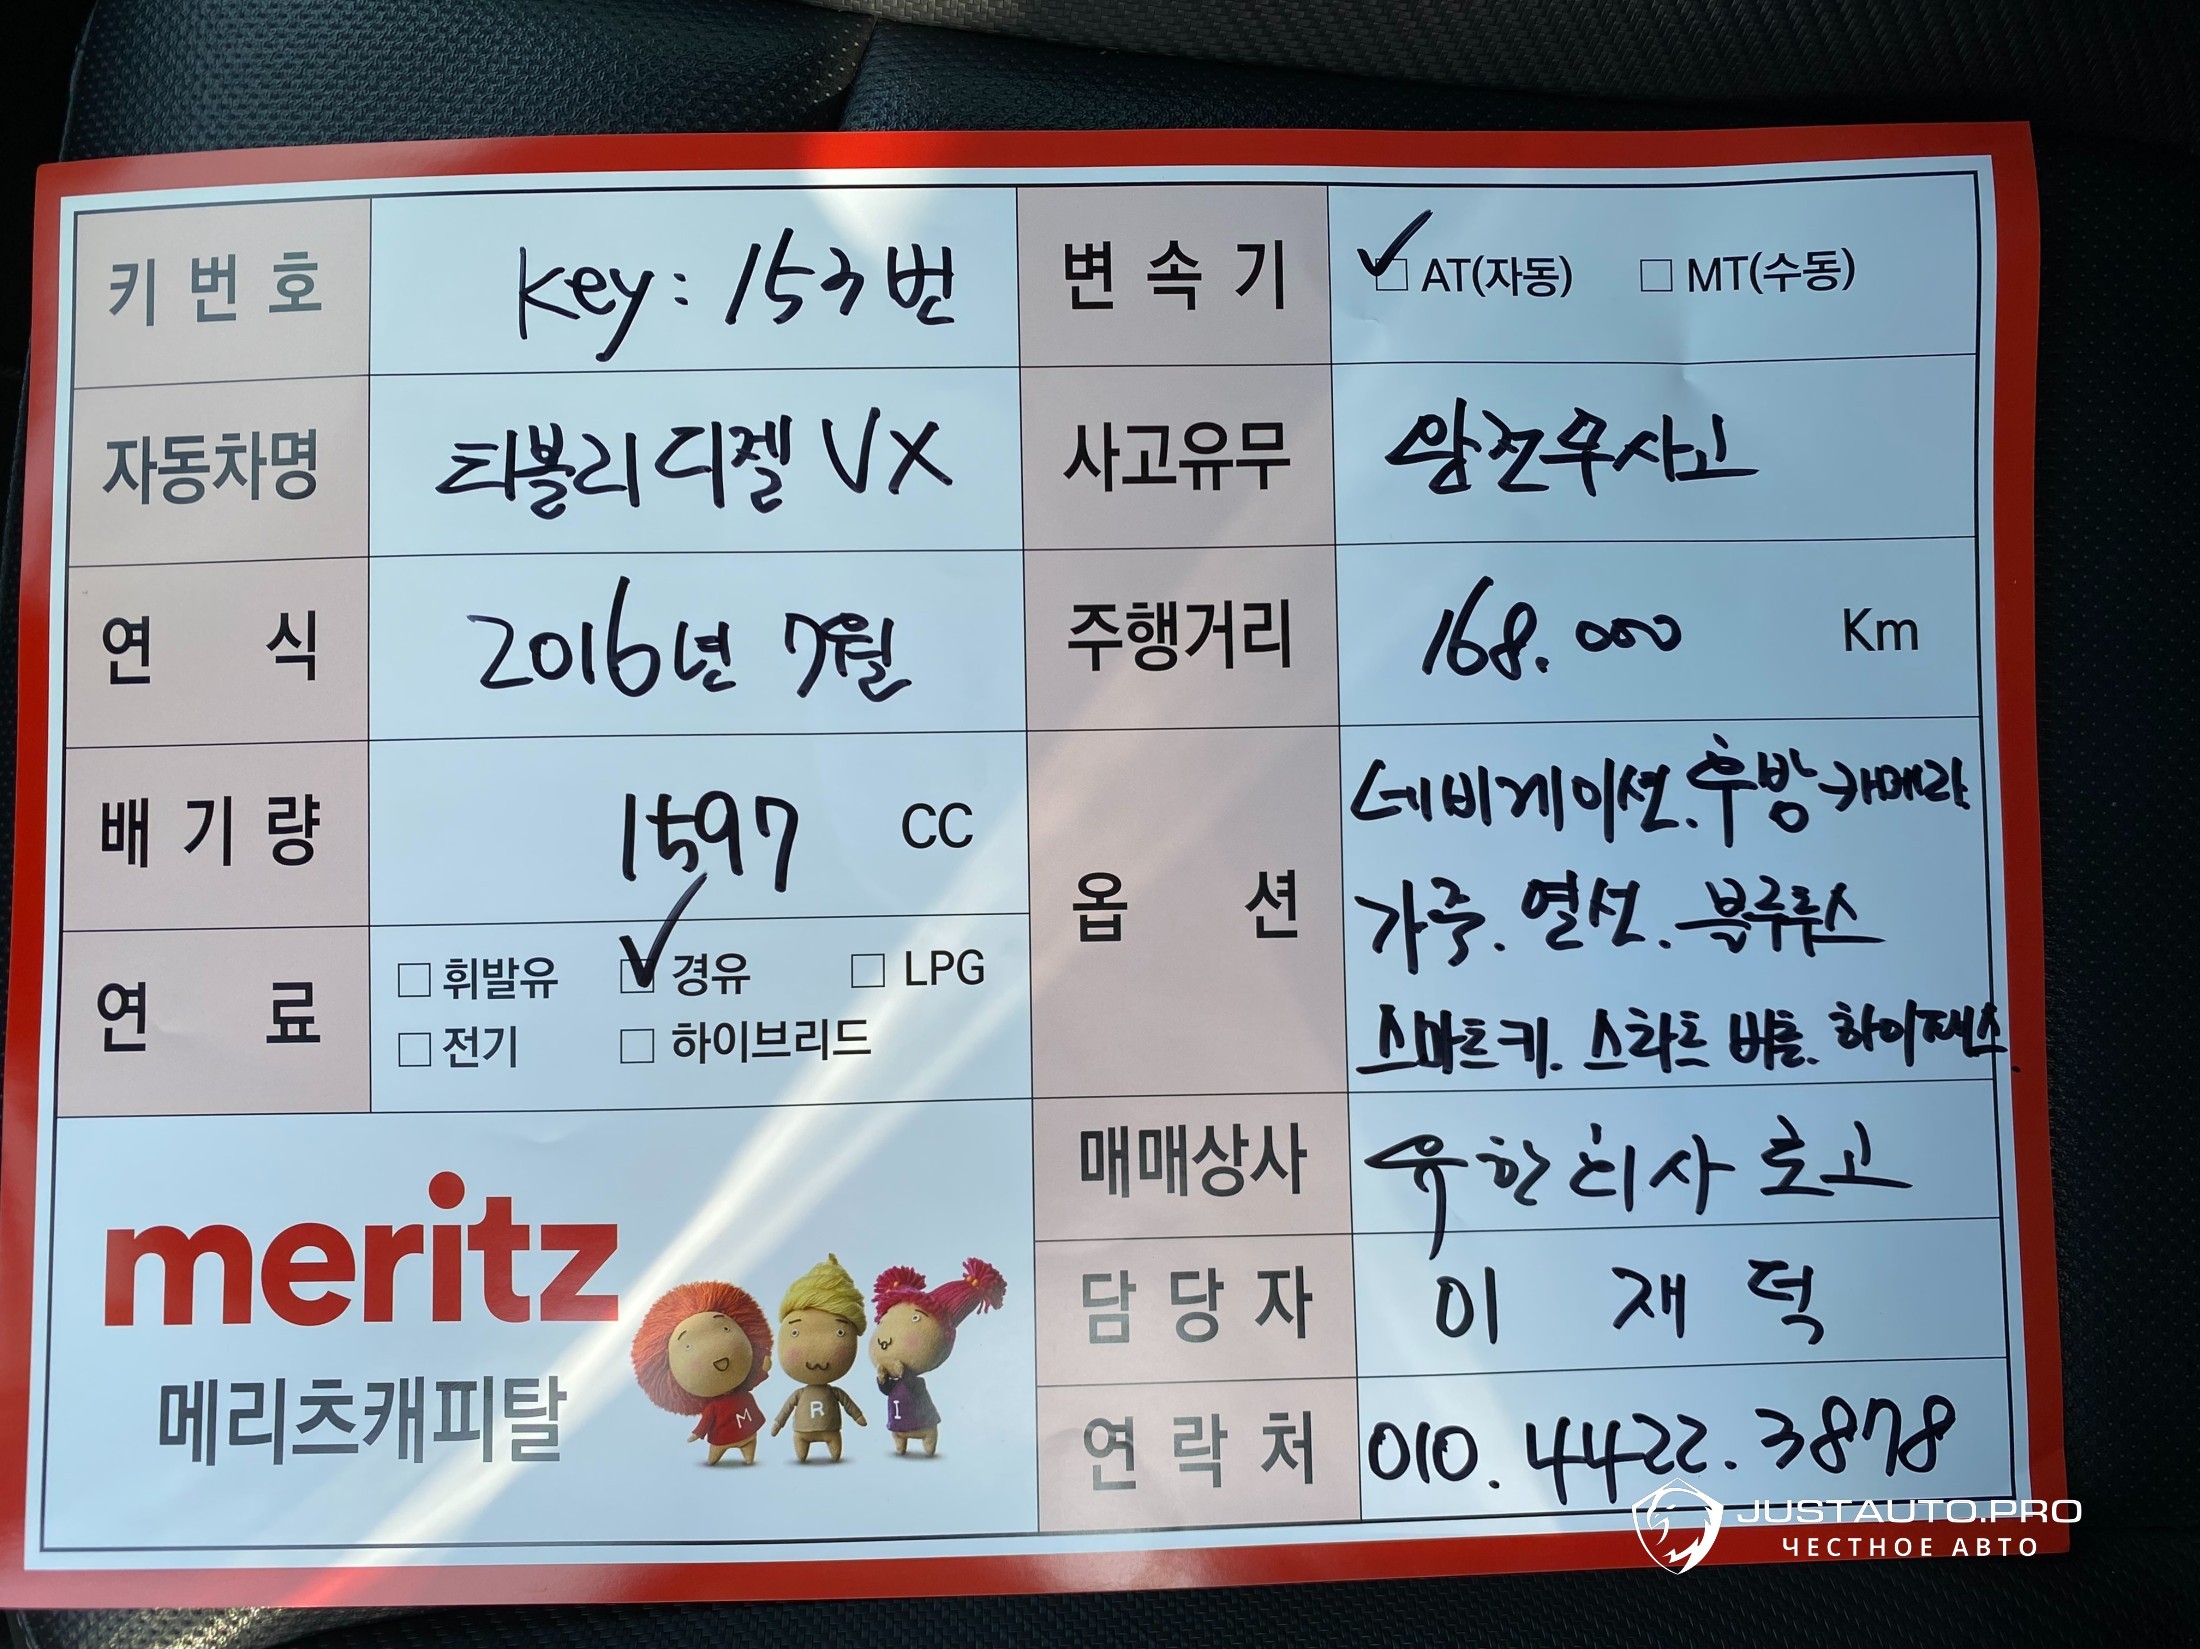 키번호 key: 153번
변속기 ☑ AT(자동) ☐ MT(수동)
자동차명 티볼리 디젤 VX
사고유무 완전무사고
연식 2016년 7월
주행거리 168.000 Km
배기량 1597 CC
옵션 네비게이션. 후방카메라
가죽. 열선. 블루투스
스마트키. 스타트 버튼. 하이패스.
연료 ☐ 휘발유 ☑ 경유 ☐ LPG
☐ 전기 ☐ 하이브리드
매매상사
담당자 이 재 덕
연락처 010. 4422. 3878
meritz
메리츠캐피탈
M R I
JUSTAUTO.PRO
ЧЕСТНОЕ АВТО